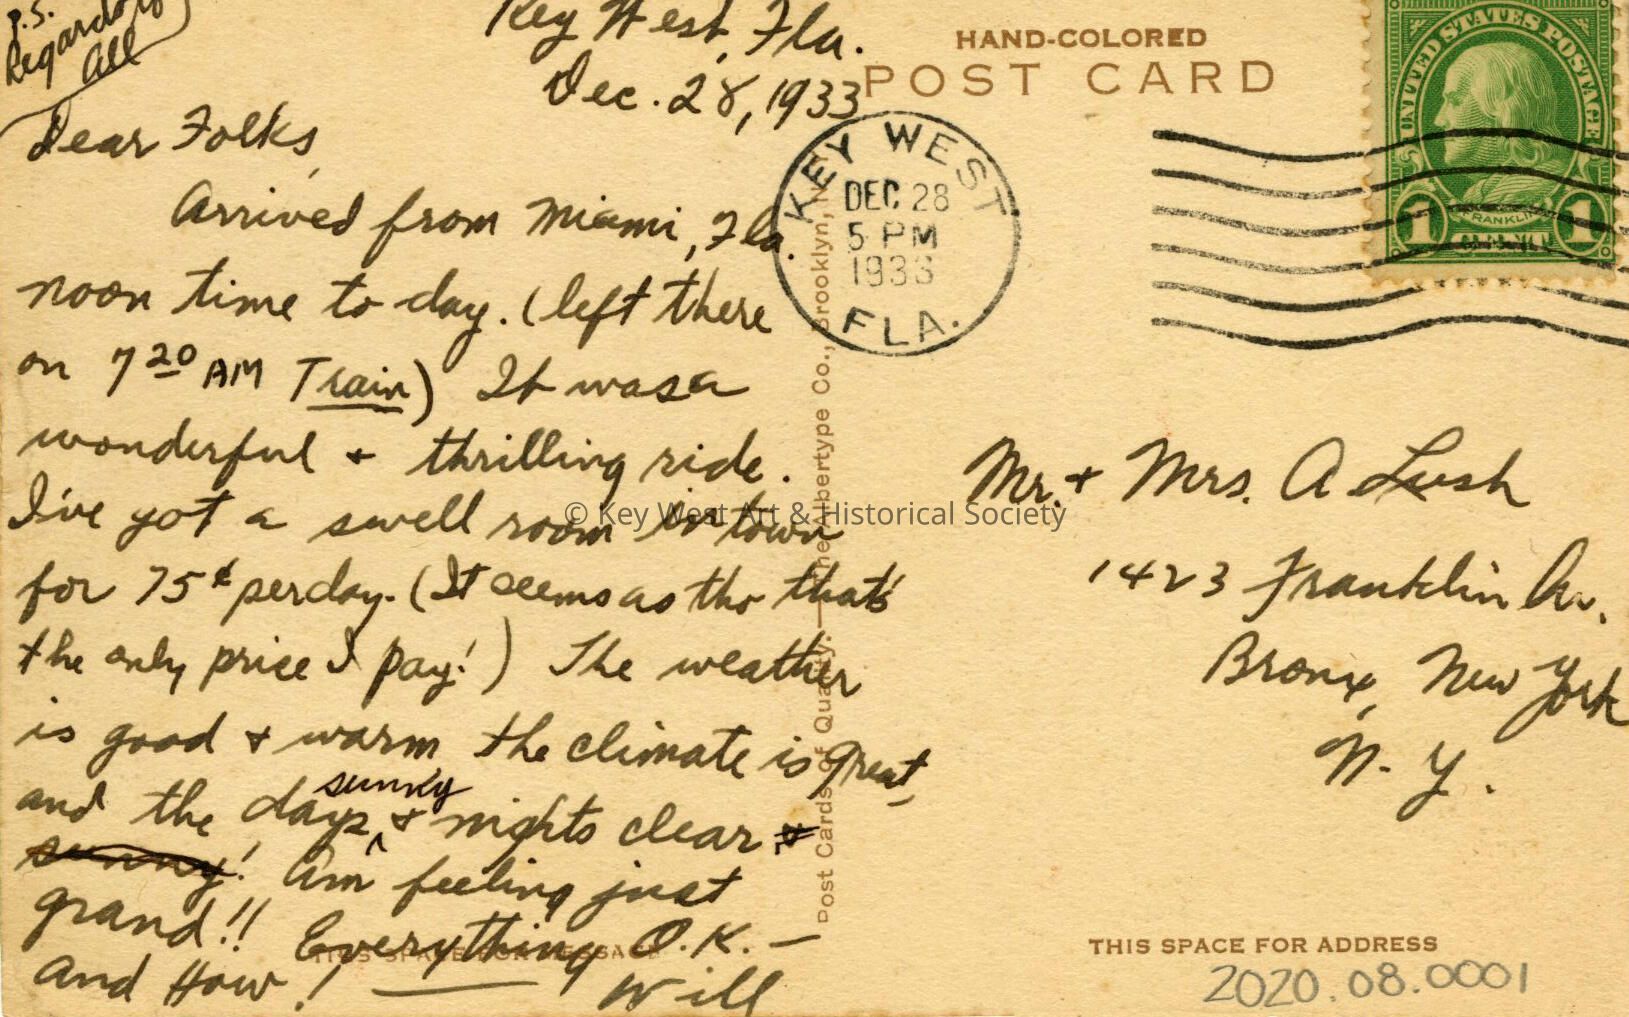 P.S.
Regards to
All
Key West, Fla.
Dec. 28, 1933
Dear Folks,
Arrived from Miami, Fla.
noon time to day. (left there
on 7 20 AM Train) It was a
wonderful + thrilling ride.
I've got a swell room in town
for 75¢ per day. (It seems as tho that's
the only price I pay!) The weather
is good + warm the climate is great,
and the days sunny + nights clear +
sunny! Am feeling just
grand!! Everything O.K. —
And How! Will
HAND-COLORED
POST CARD
KEY WEST
DEC 28
5 PM
1933
FLA.
UNITED STATES POSTAGE
FRANKLIN
1 1
Post Cards of Quality. — The Albertype Co., Brooklyn, N.
© Key West Art & Historical Society
Mr. + Mrs. A Lush
1423 Franklin Av.
Bronx, New York
N. Y.
THIS SPACE FOR MESSAGE
THIS SPACE FOR ADDRESS
2020.08.0001